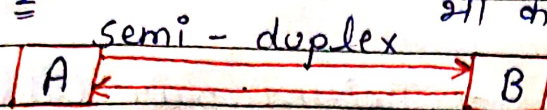 semi - duplex
A B